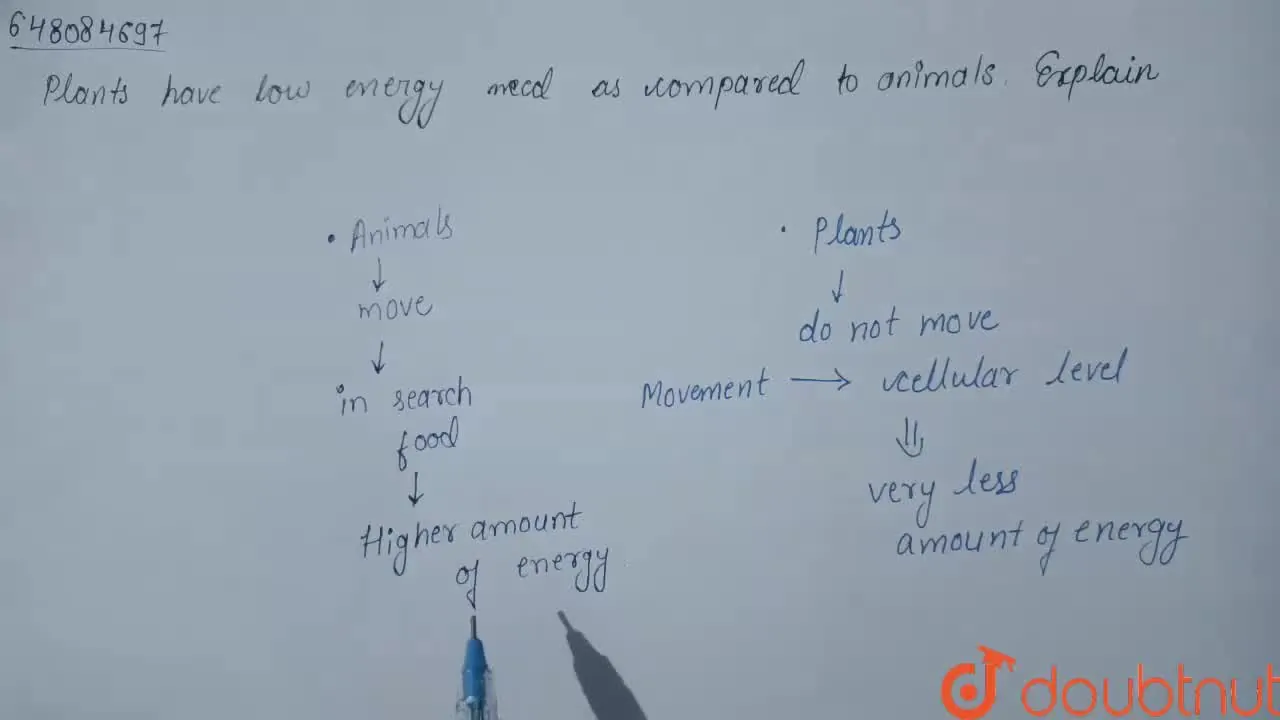 648084697
Plants have low energy need as compared to animals. Explain
• Animals
↓
move
↓
in search
food
↓
Higher amount
of energy
• Plants
↓
do not move
Movement → cellular level
⇓
very less
amount of energy
doubtnut